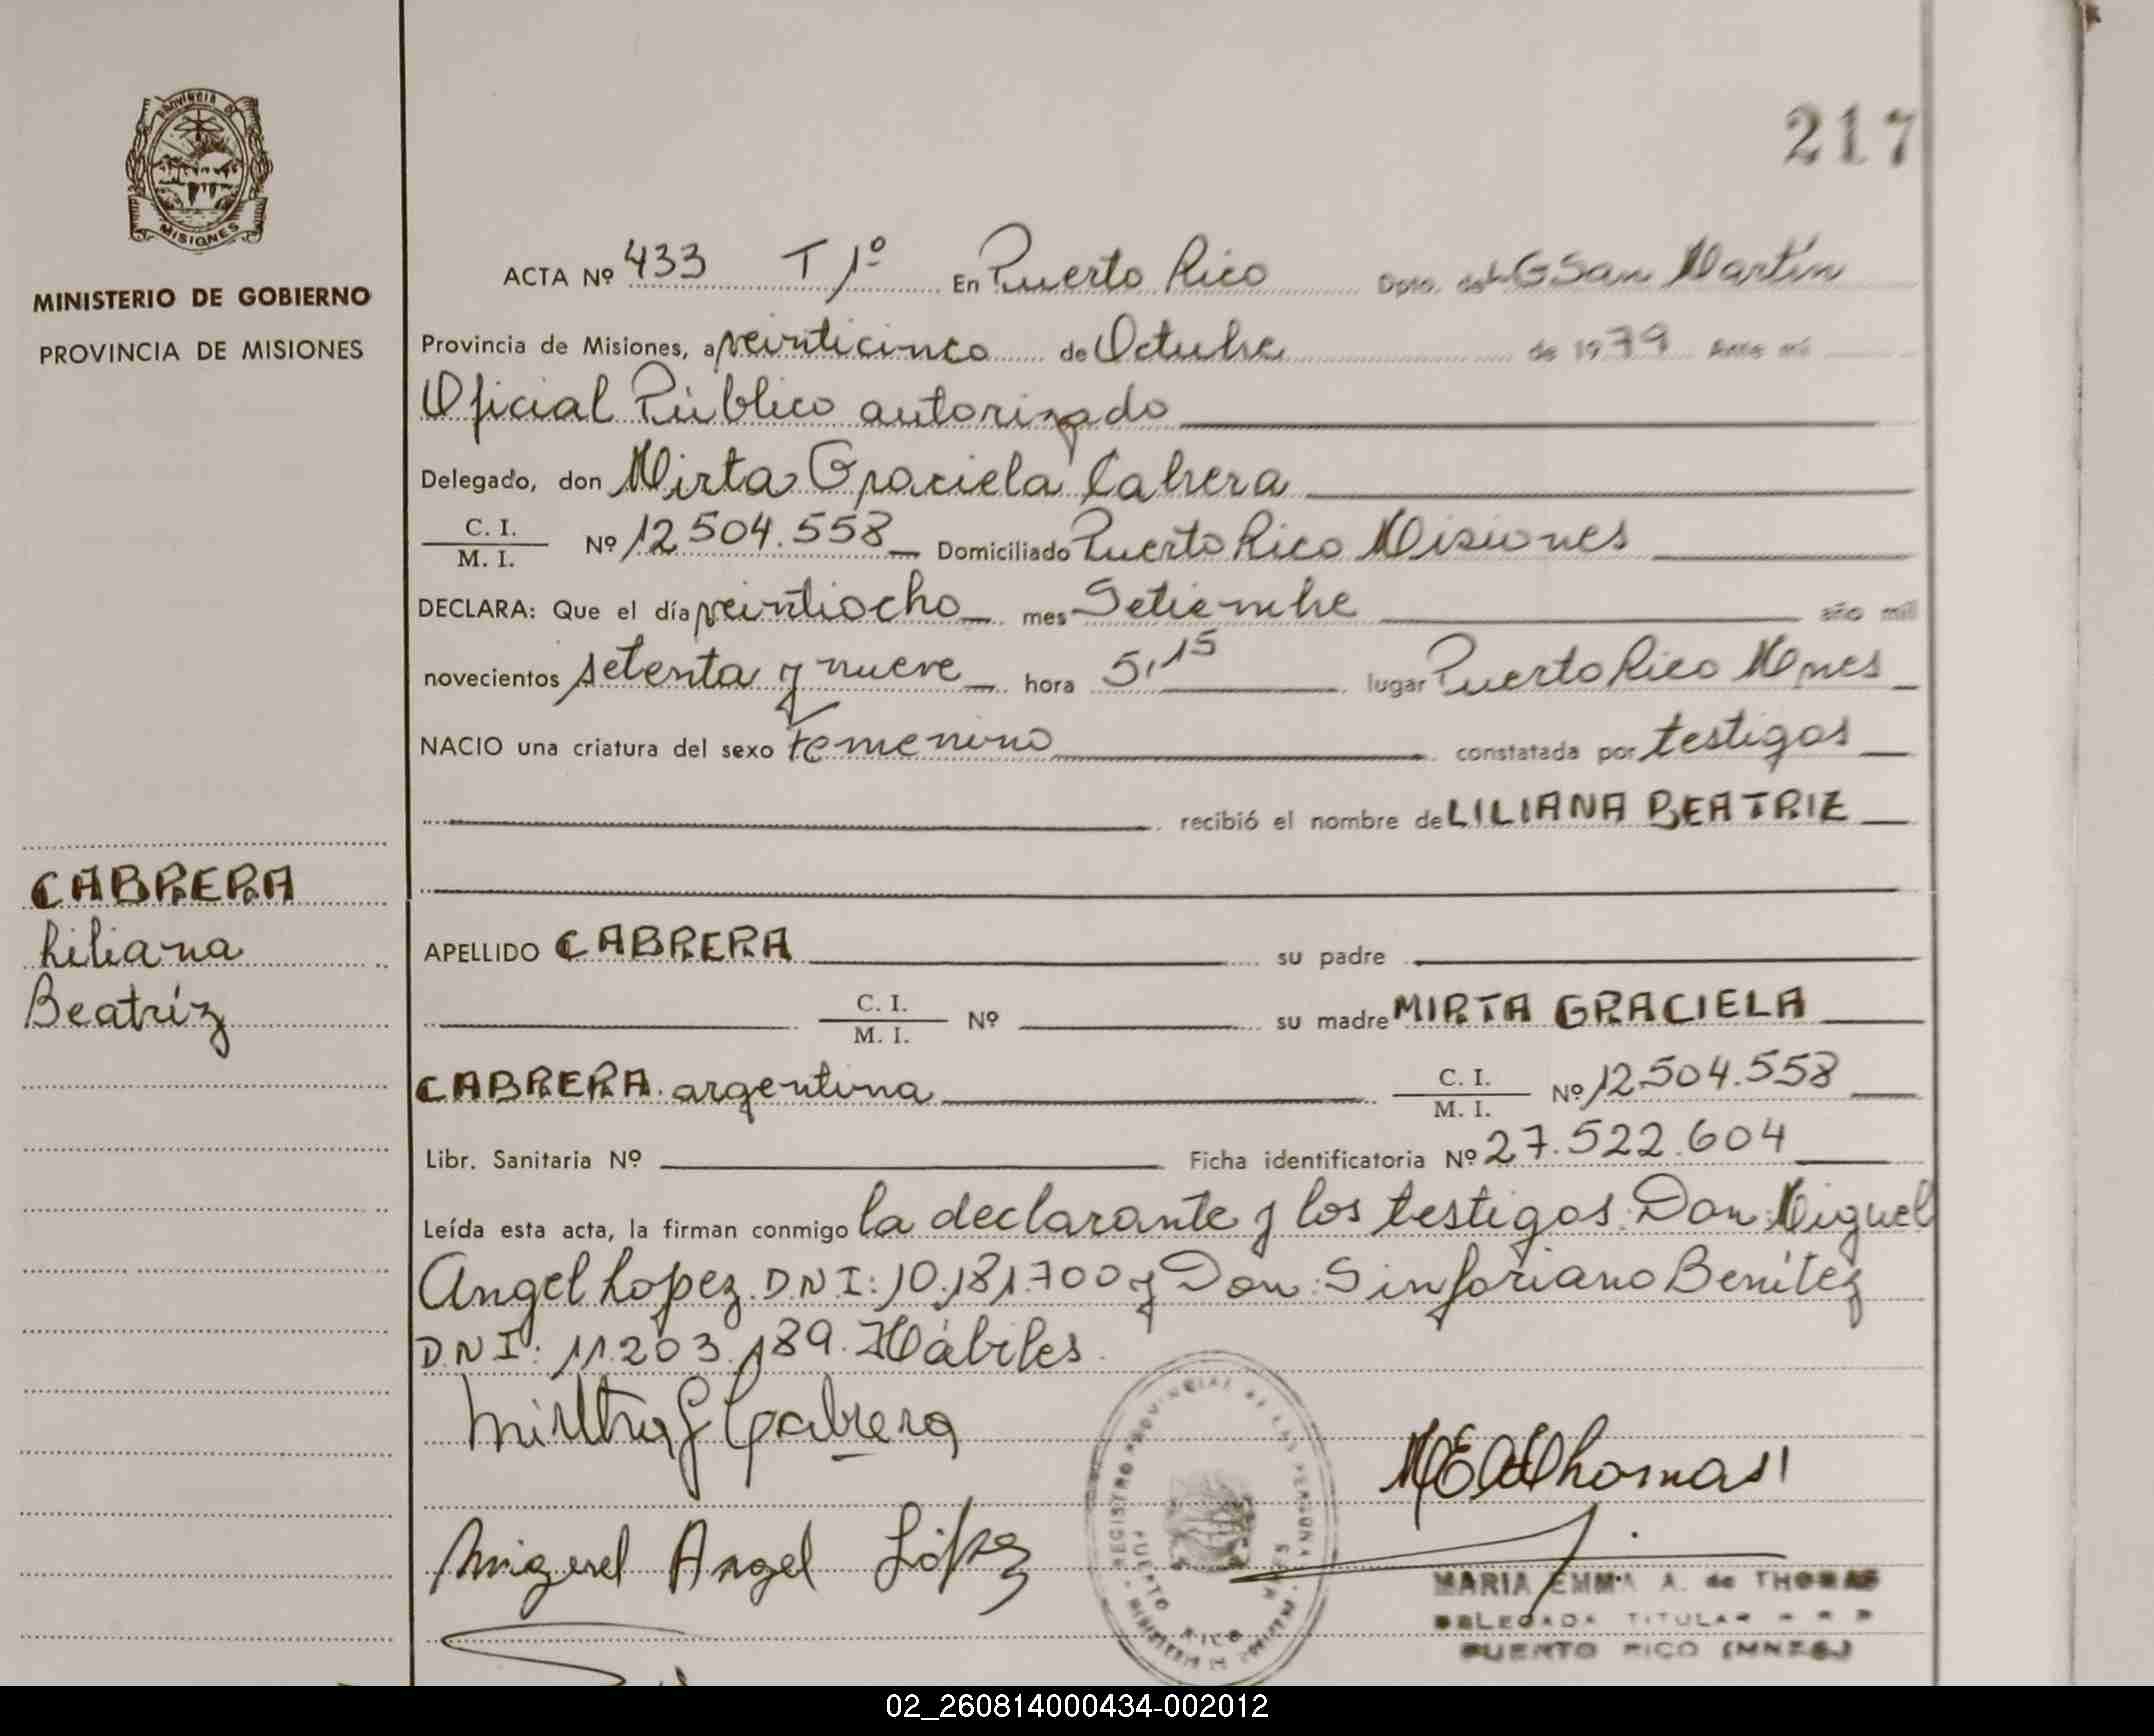 217
MISIONES
MINISTERIO DE GOBIERNO
PROVINCIA DE MISIONES
ACTA Nº 433 T 1º En Puerto Rico Dpto. de L G San Martín
Provincia de Misiones, a veinticinco de Octubre de 1979 Ante mí
Oficial Público autorizado
Delegado, don Mirta Graciela Cabrera
C. I.
M. I. Nº 12504.558 Domiciliado Puerto Rico Misiones
DECLARA: Que el día veintiocho mes Setiembre año mil
novecientos setenta y nueve hora 5,15 lugar Puerto Rico Mnes
NACIO una criatura del sexo femenino constatada por testigos
recibió el nombre de LILIANA BEATRIZ
CABRERA
Liliana
Beatríz
APELLIDO CABRERA su padre
C. I.
M. I. Nº su madre MIRTA GRACIELA
CABRERA. argentina C. I.
M. I. Nº 12504.558
Libr. Sanitaria Nº Ficha identificatoria Nº 27.522.604
Leída esta acta, la firman conmigo la declarante y los testigos: Don: Miguel
Angel Lopez. DNI: 10.181.700 y Don: Sinforiano Benítez
DNI: 11.203.189. Hábiles.
Mirtha G Cabrera
Miguel Angel López
REGISTRO PROVINCIAL DE LAS PERSONAS
PUERTO RICO
MEAdThomas
MARIA EMMA A. de THOMAS
DELEGADA TITULAR R P
PUERTO RICO (MNES.)
02_260814000434-002012